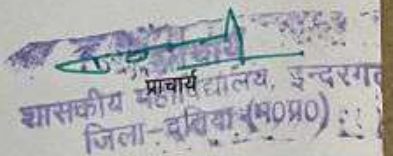 प्राचार्य
शासकीय महाविद्यालय, इन्दरगढ
जिला-दतिया (म०प्र०)